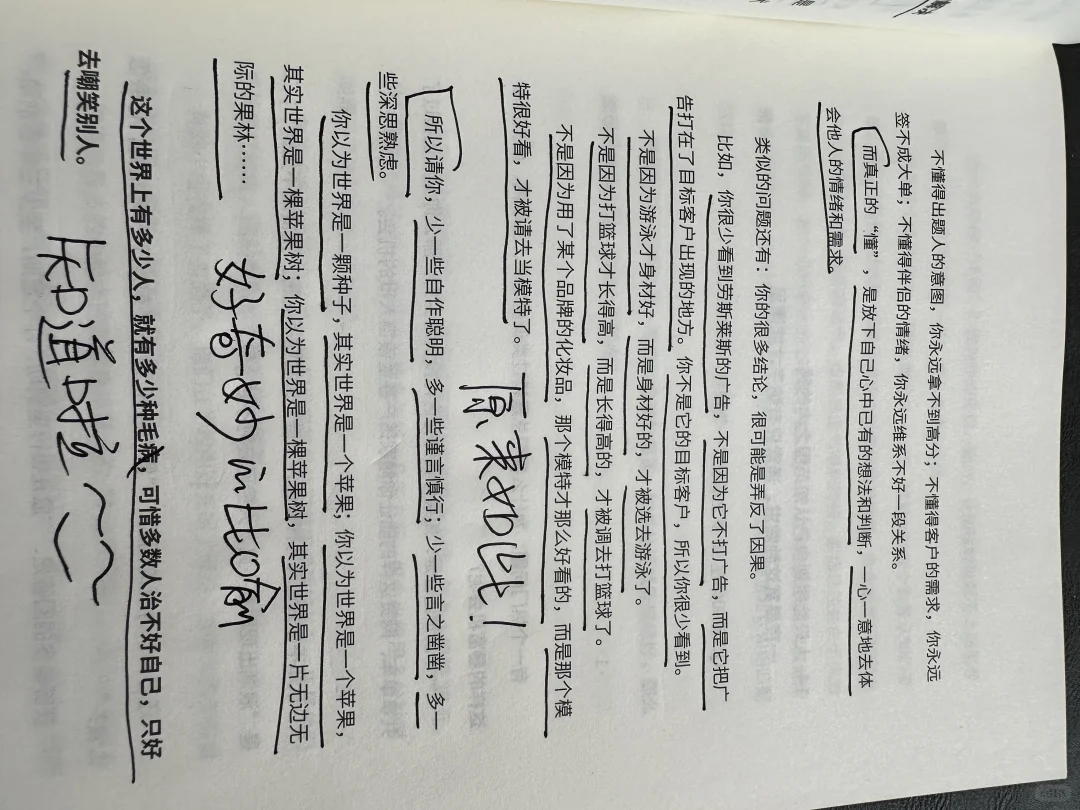 不懂得出题人的意图，你永远拿不到高分；不懂得客户的需求，你永远
签不成大单；不懂得伴侣的情绪，你永远维系不好一段关系。
而真正的“懂”，是放下自己心中已有的想法和判断，一心一意地去体
会他人的情绪和需求。
类似的问题还有：你的很多结论，很可能是弄反了因果。
比如，你很少看到劳斯莱斯的广告，不是因为它不打广告，而是它把广
告打在了目标客户出现的地方。你不是它的目标客户，所以你很少看到。
不是因为游泳才身材好，而是身材好的，才被选去游泳了。
不是因为打篮球才长得高，而是长得高的，才被调去打篮球了。
不是因为用了某个品牌的化妆品，那个模特才那么好看的，而是那个模
特很好看，才被请去当模特了。
原来如此！
所以请你，少一些自作聪明，多一些谨言慎行；少一些言之凿凿，多一
些深思熟虑。
你以为世界是一颗种子，其实世界是一个苹果；你以为世界是一个苹果，
其实世界是一棵苹果树；你以为世界是一棵苹果树，其实世界是一片无边无
际的果林……
好奇妙的比喻
这个世界上有多少人，就有多少种毛病，可惜多数人治不好自己，只好
去嘲笑别人。
知道啦~~